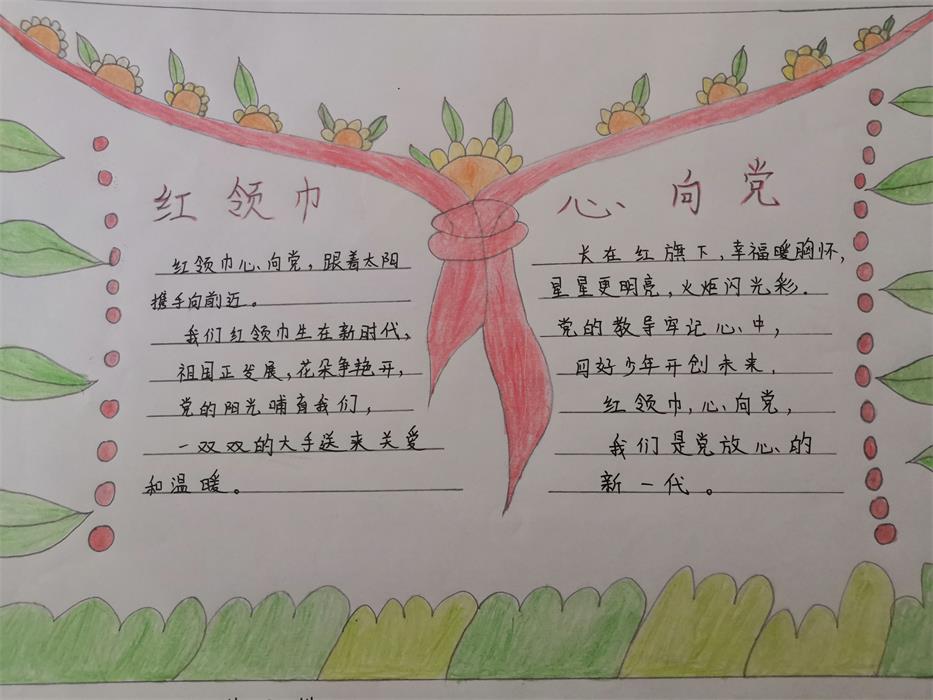 红领巾 心向党
红领巾心向党，跟着太阳
携手向前迈。
我们红领巾生在新时代，
祖国正发展，花朵争艳开，
党的阳光哺育我们，
一双双的大手送来关爱
和温暖。
长在红旗下，幸福暖胸怀，
星星更明亮，火炬闪光彩．
党的教导牢记心中，
同好少年开创未来．
红领巾，心向党，
我们是党放心的
新一代。